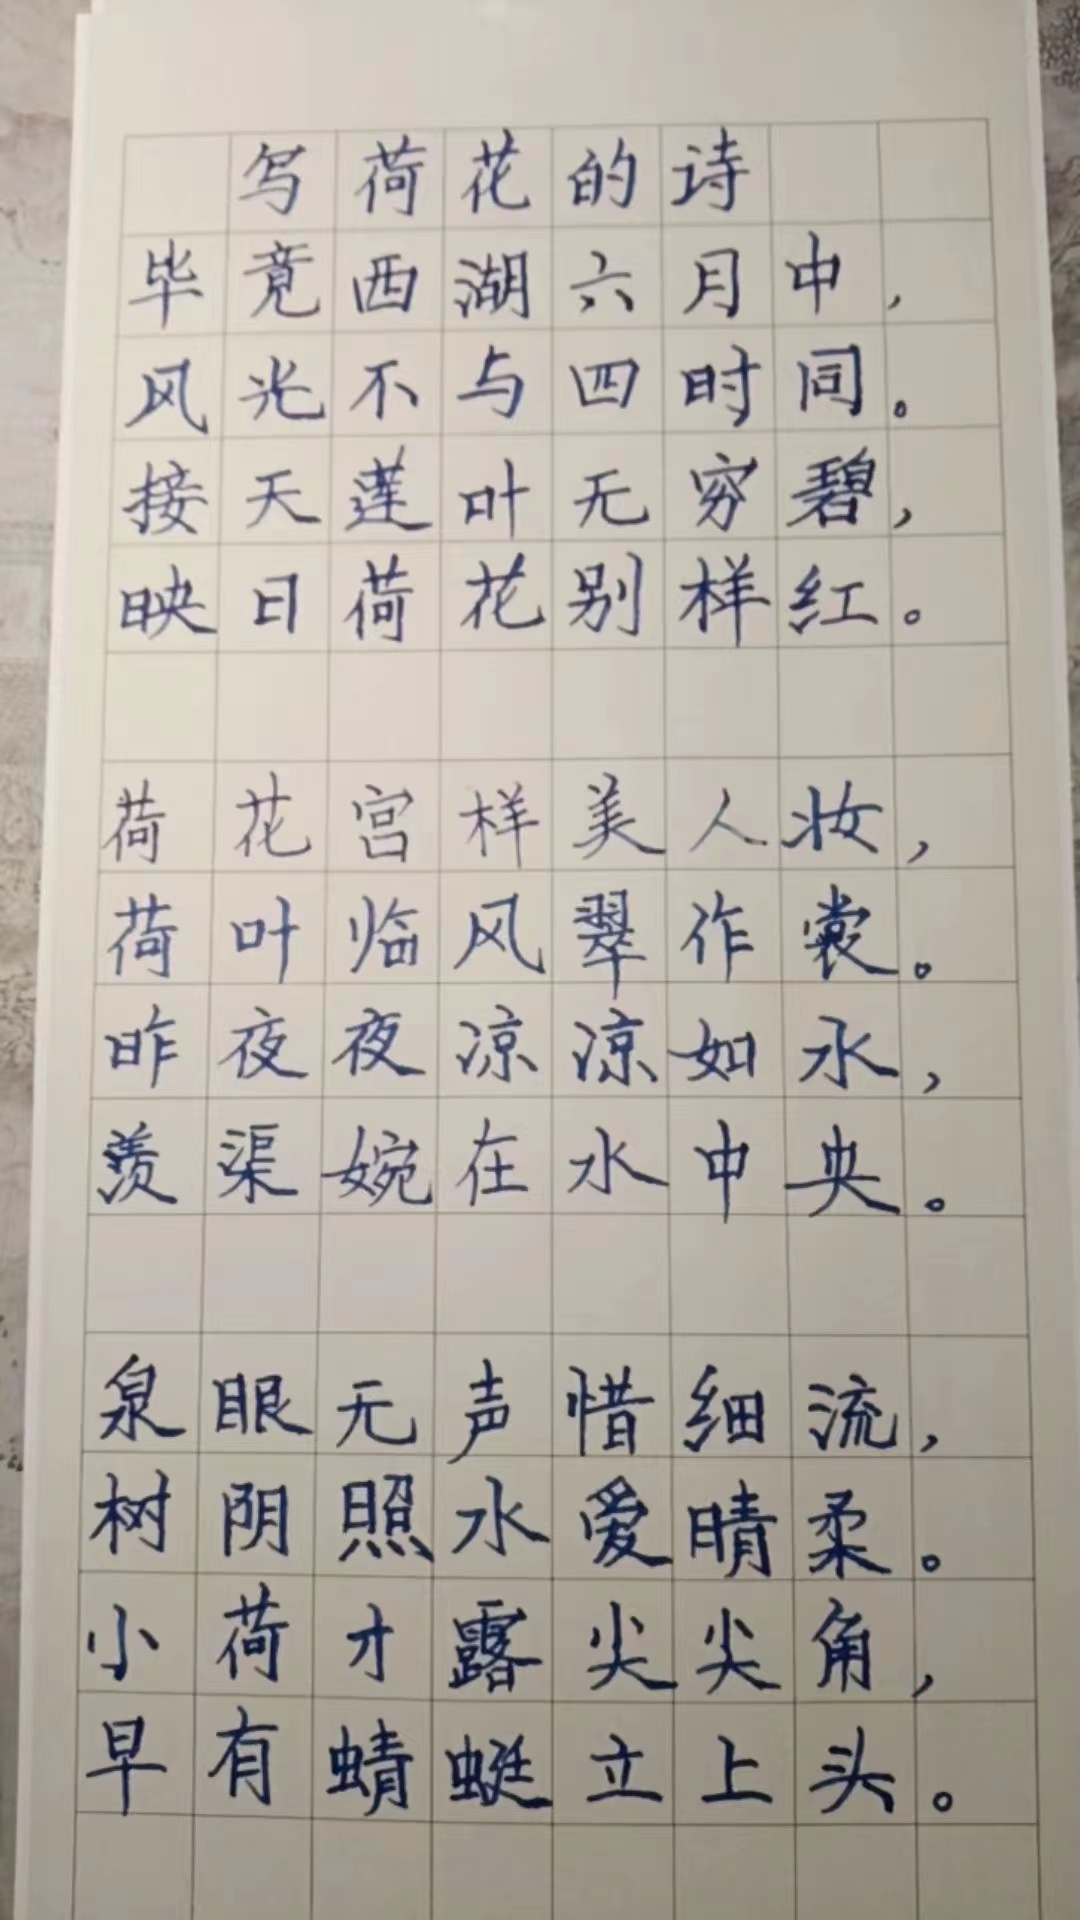 写荷花的诗
毕竟西湖六月中，
风光不与四时同。
接天莲叶无穷碧，
映日荷花别样红。
荷花宫样美人妆，
荷叶临风翠作裳。
昨夜夜凉凉如水，
羡渠婉在水中央。
泉眼无声惜细流，
树阴照水爱晴柔。
小荷才露尖尖角，
早有蜻蜓立上头。